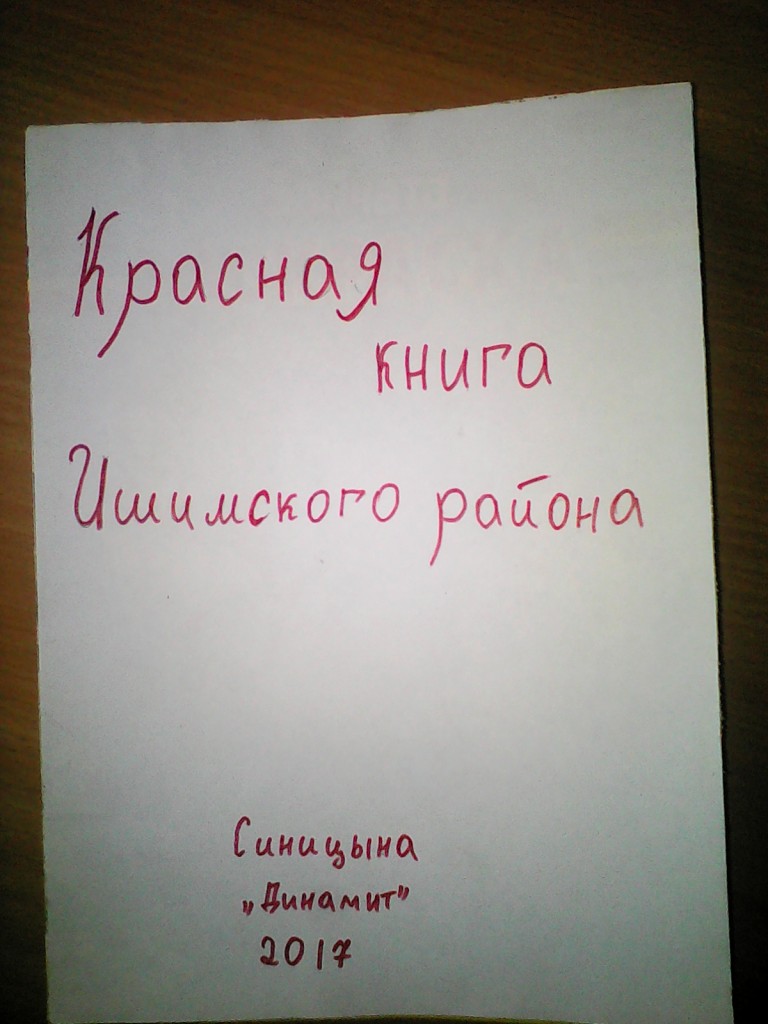 Красная
книга
Ишимского района
Синицына
„Динамит”
2017